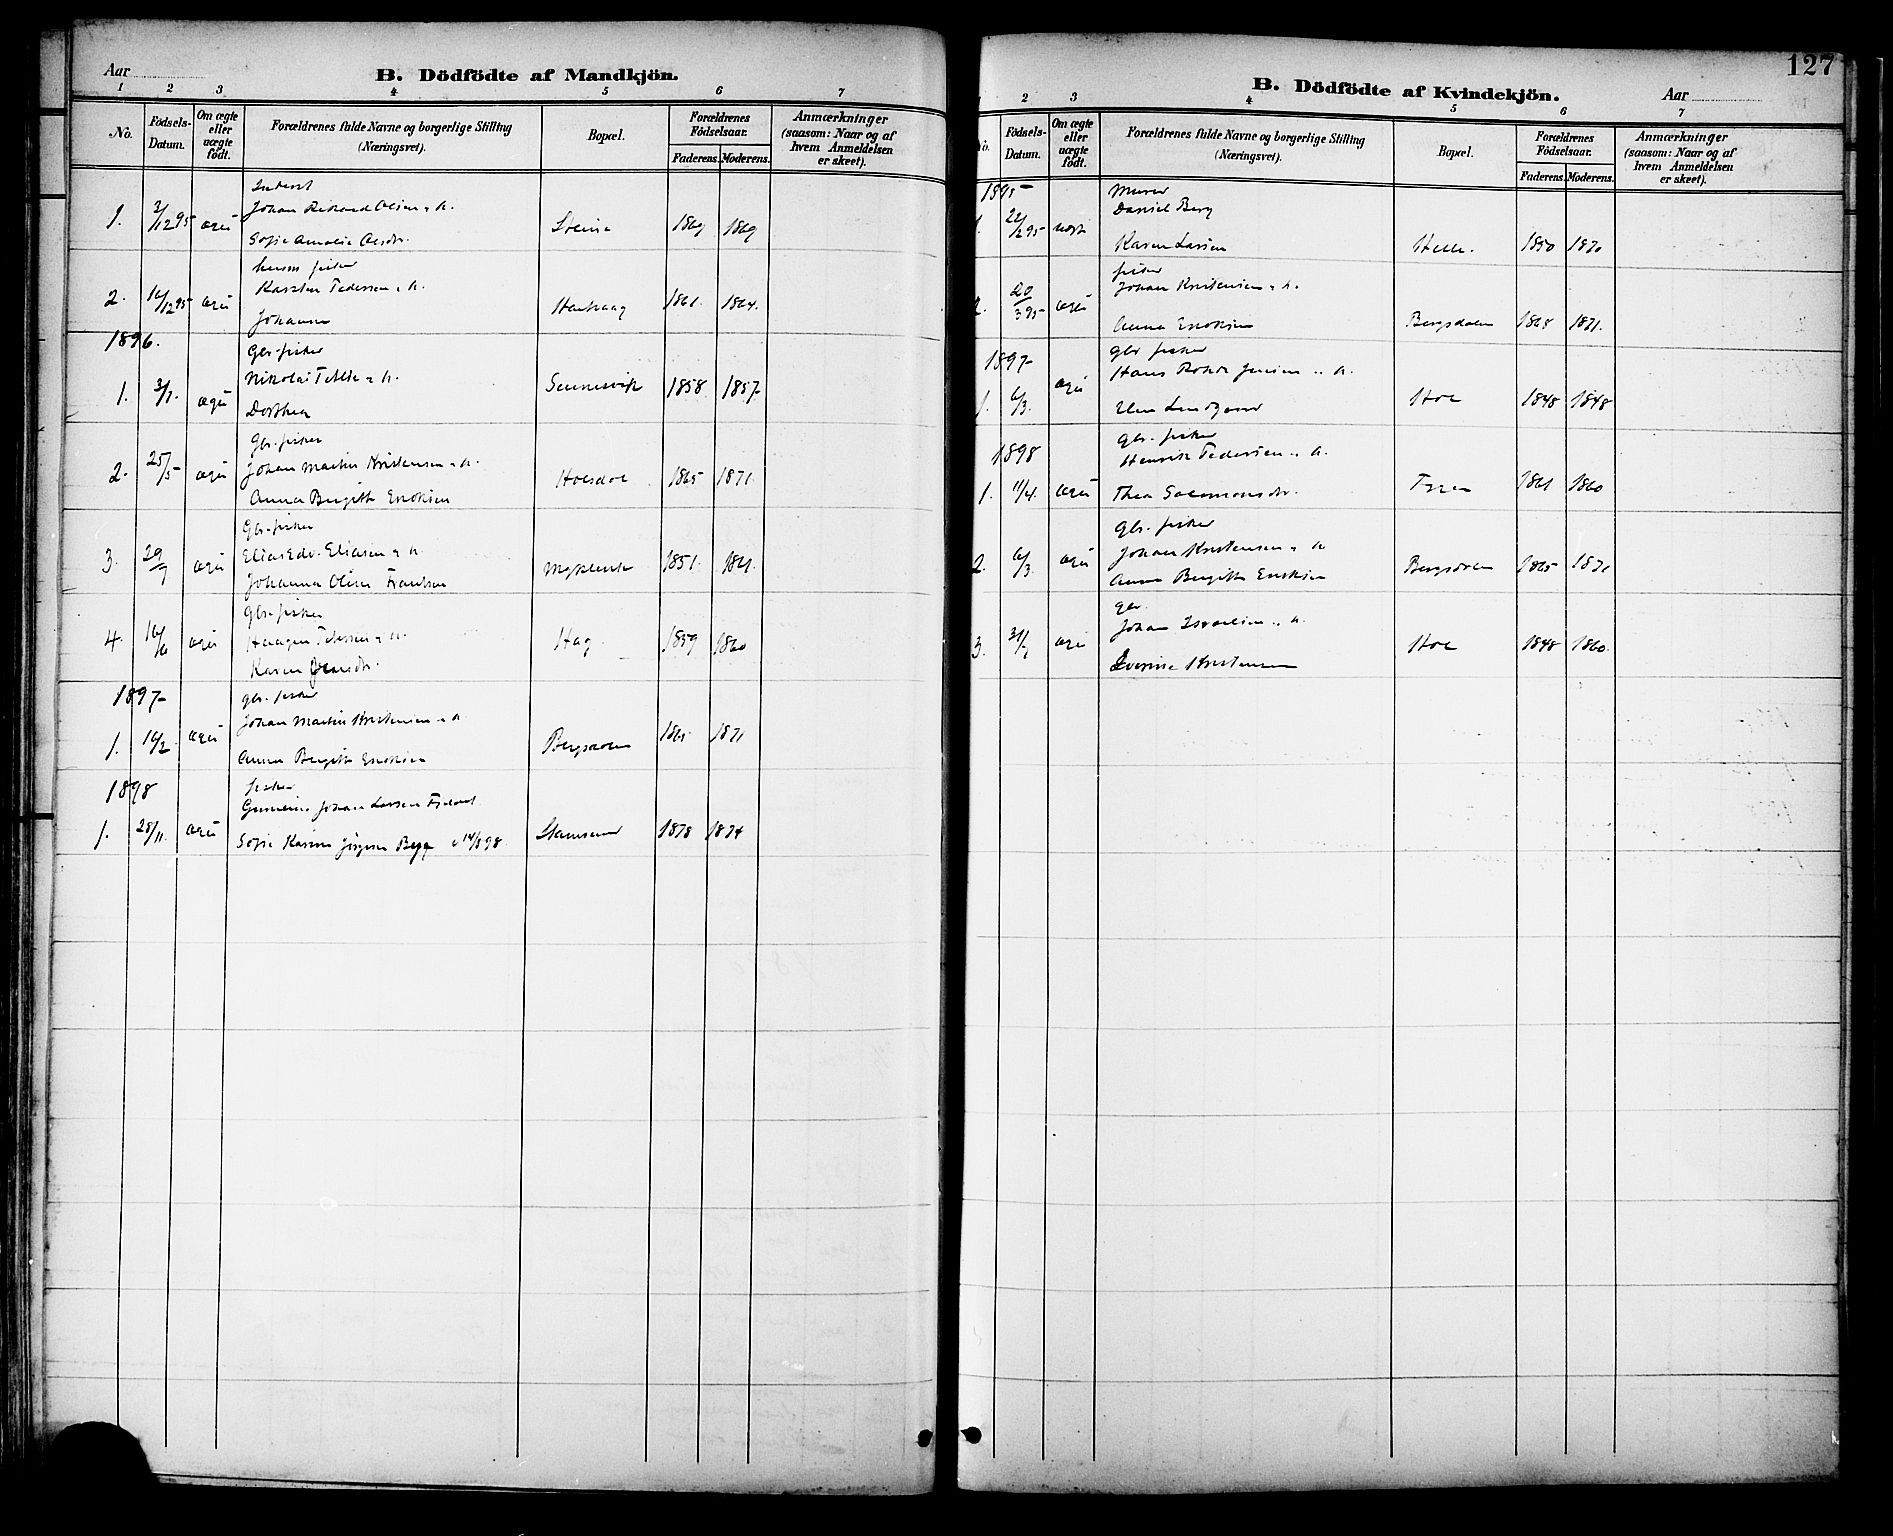 Aar
B. Dödfödte af Mandkjön.
1 2 3 4 5 6 7
No. Födsels-Datum. Om ægte eller uægte født. Forældrenes fulde Navne og borgerlige Stilling (Næringsvei). Bopæl. Forældrenes Födselsaar. Faderens. Moderens. Anmærkninger (saasom: Naar og af hvem Anmeldelsen er skeet).
Inderst
1. 3/12 95 ægte Johan Rikard Olsen o. h. Steine 1869 1869
Sofie Amalie Olsdtr.
fisker
2. 16/12 95 ægte Karsten Pedersen o. h. 1861. 1864.
Johanna
1896.
Gbr. fisker
1. 3/1. ægte Nikolai o. h. Sennesvik 1858 1857
Dorthea
Gbr. fisker
2. 25/5 ægte Johan Martin Kristensen o. h. Holsdal 1865 1871.
Anna Birgitte Enoksen
Gbr. fisker
3. 29/7 ægte Elias Edv. Eliasen o. h. 1851. 1861.
Johanna Oline Frantsen
Gbr. fisker
4. 16/6 ægte Haagen Petersen o. h. Hag 1859 1860
Karen Jensdtr.
1897
gbr. fisker
1. 16/2. ægte Johan Martin Kristensen o. h. Bergsdalen 1865 1871
Anna Birgitte Enoksen
1898
fisker
Johan Larsen
1. 28/11. ægte Sofie Karine Jörgine Berg v 14/8 98. Stamsund 1878 1874
127
B. Dödfödte af Kvindekjön.
Aar
2 3 4 5 6 7
No. Födsels-Datum. Om ægte eller uægte födt. Forældrenes fulde Navne og borgerlige Stilling (Næringsvei). Bopæl. Forældrenes Födselsaar. Faderens. Moderens. Anmærkninger (saasom: Naar og af hvem Anmeldelsen er skeet).
1895
Murer
1. 22/2 95 uægte Daniel Berg
Karen Larsen Helle. 1850 1870
fisker
2. 20/3 95 ægte Johan Kristensen o. h.
Anna Enoksen Bergsdalen 1868 1871.
1897
gbr fisker
1. 6/3. ægte Hans Jensen o. h. Hol 1848 1848
1898
gbr. fisker
Henrik Pedersen o. h.
1. 11/4. ægte Thea Salomonsdtr. 1861 1860
gbr. fisker
2. 6/3. ægte Johan Kristensen o. h. Bergsdalen 1865 1871
Anna Birgitte Enoksen
gbr.
3. 31/7 ægte Johan Israelsen o. h. Hol 1848 1860.
Kristensen